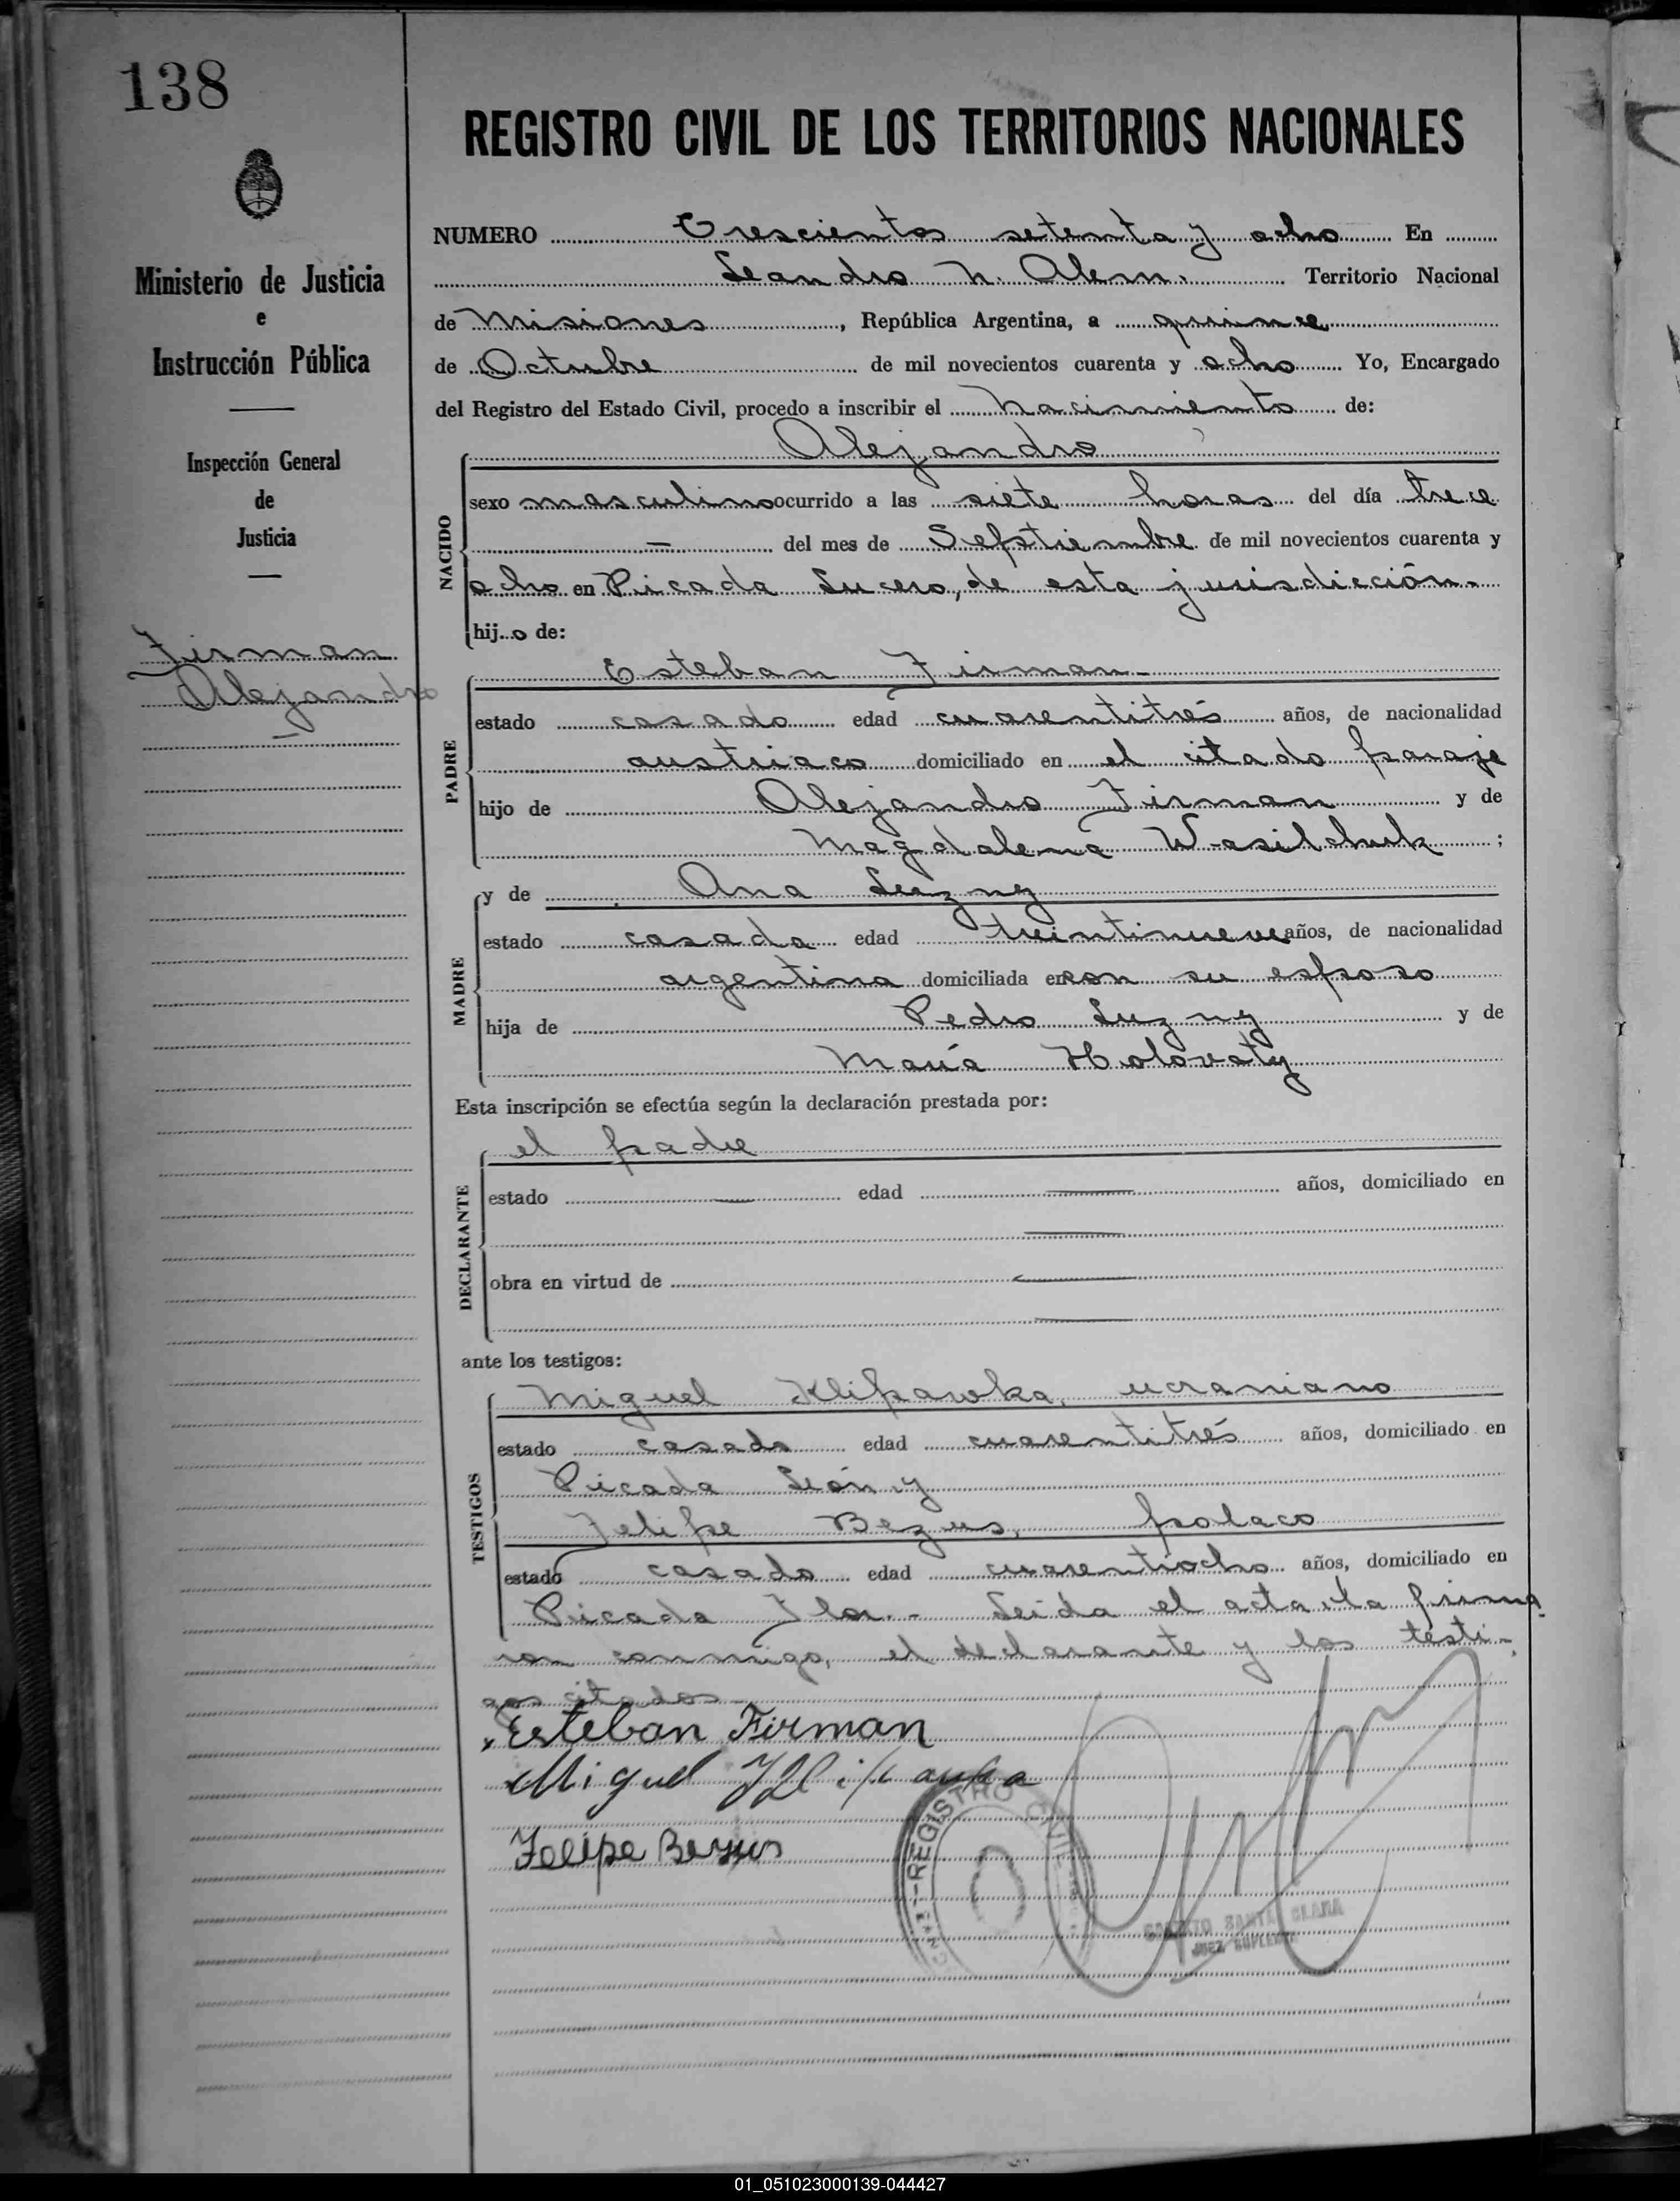 138
REGISTRO CIVIL DE LOS TERRITORIOS NACIONALES
Ministerio de Justicia
e
Instrucción Pública
Inspección General
de
Justicia
Firman
Alejandro
NUMERO Trescientos setenta y ocho En
Leandro N. Alem. Territorio Nacional
de Misiones, República Argentina, a quince
de Octubre de mil novecientos cuarenta y ocho Yo, Encargado
del Registro del Estado Civil, procedo a inscribir el nacimiento de:
Alejandro
NACIDO
sexo masculino ocurrido a las siete horas del día trece
— del mes de Sepstiembre de mil novecientos cuarenta y
ocho en Picada Lucero, de esta jurisdicción.
hijo de:
Esteban Firman
PADRE
estado casado edad cuarentitrés años, de nacionalidad
austriaco domiciliado en el citado paraje
hijo de Alejandro Firman y de
Magdalena Wasilchuk ;
y de Ana Luzny
MADRE
estado casada edad treintinueve años, de nacionalidad
argentina domiciliada en con su esposo
hija de Pedro Luzny y de
María Holovaty
Esta inscripción se efectúa según la declaración prestada por:
el padre
DECLARANTE
estado — edad — años, domiciliado en
—
obra en virtud de —
—
ante los testigos:
Miguel Klipawka, ucraniano
TESTIGOS
estado casado edad cuarentitrés años, domiciliado en
Picada León y
Felipe Bezus, polaco
estado casado edad cuarentiocho años, domiciliado en
Picada Flor.- Leida el acta la firma
ron conmigo, el declarante y los testi-
gos citados
Esteban Firman
Miguel Klipawka
Felipe Bezus
REGISTRO CIVIL
SANTA CLARA
JUEZ SUPLENTE
01_051023000139-044427